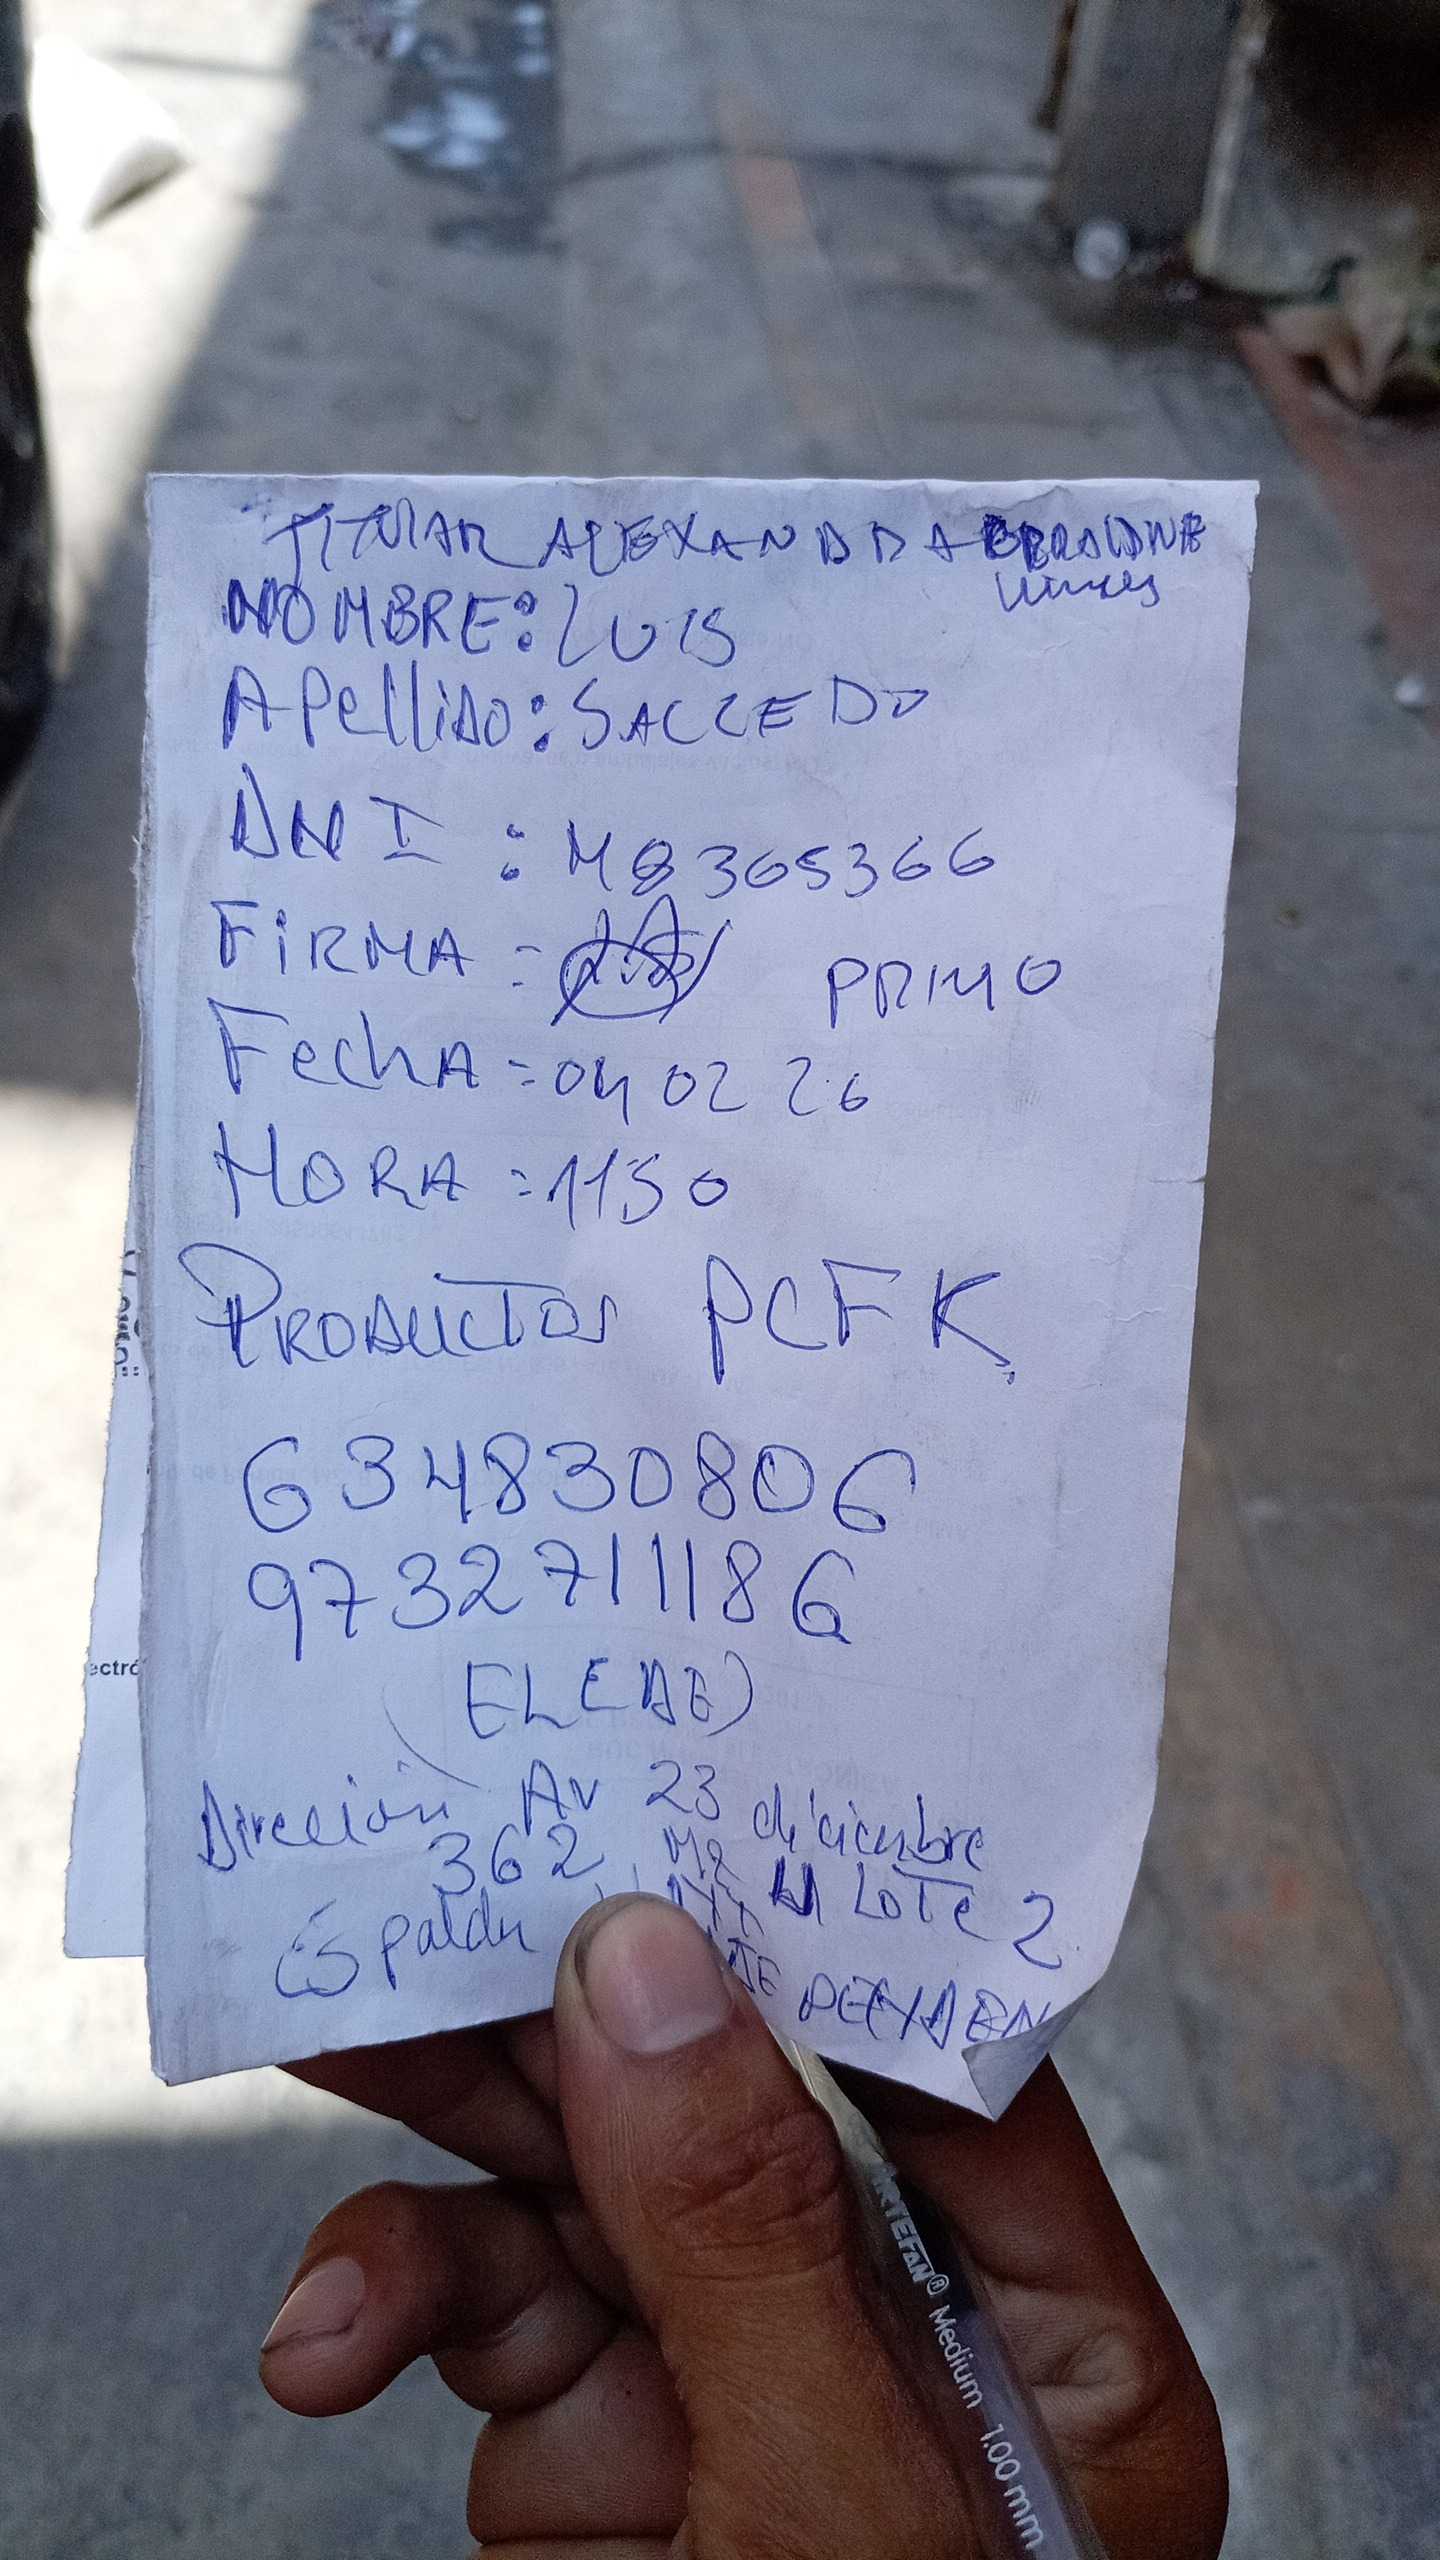 TITULAR ALEXANDRA GERALDINE
NOMBRE: LUIS
APellido: SALCEDO
DNI : 48365366
FIRMA = PRIMO
FechA = 04 02 26
HORA = 1150
PRODUCTOS PCFK
634830806
9732711186
Dirección Av 23 diciembre
362, Mz LOTE 2
Espalda
ectró
ARTEFAN® Medium 1.00 mm